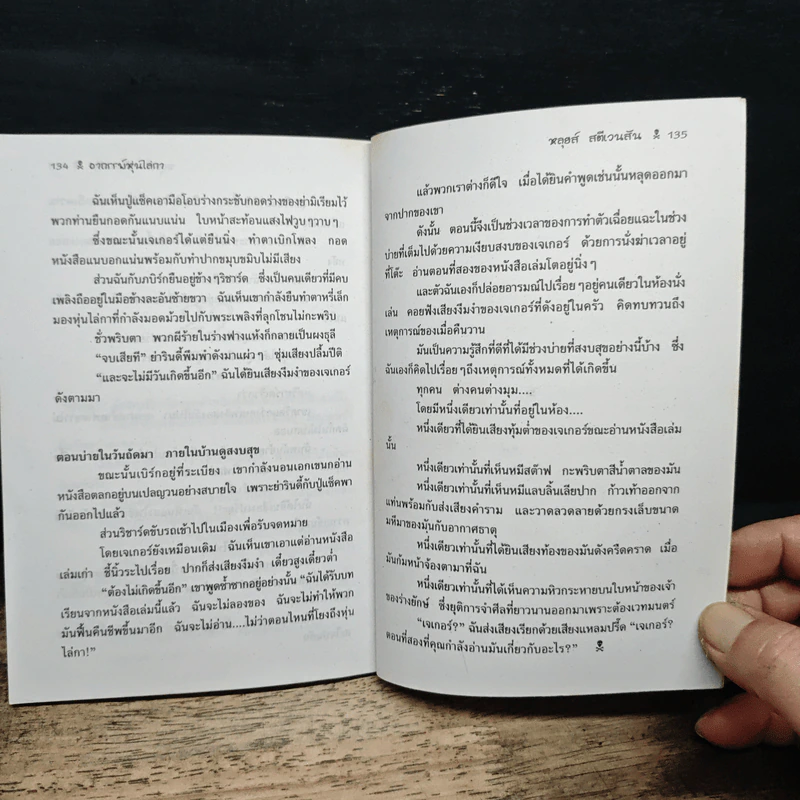 134 ☠ อาถรรพ์หุ่นไล่กา
ฉันเห็นปู่แช็คเอามือโอบร่างกระชับกอดร่างของย่ามิเรียมไว้
พวกท่านยืนกอดกันแนบแน่น ใบหน้าสะท้อนแสงไฟวูบๆวาบๆ
ซึ่งขณะนั้นเจเกอร์ได้แต่ยืนนิ่ง ทำตาเบิกโพลง กอด
หนังสือแนบอกแน่นพร้อมกับทำปากขมุบขมิบไม่มีเสียง
ส่วนฉันกับภบิร์กยืนอยู่ข้างๆริชาร์ด ซึ่งเป็นคนเดียวที่มีคบ
เพลิงถืออยู่ในมือข้างละอันซ้ายขวา ฉันเห็นเขากำลังยืนทำตาหรี่เล็ก
มองหุ่นไล่กาที่กำลังมอดม้วยไปกับพระเพลิงที่ลุกโชนไม่กะพริบ
ชั่วพริบตา พวกผีร้ายในร่างฟางแห้งก็กลายเป็นผงธุลี
“จบเสียที” ย่ารินดี้พึมพำดังมาแผ่วๆ ซุ่มเสียงปลื้มปีติ
“และจะไม่มีวันเกิดขึ้นอีก” ฉันได้ยินเสียงงึมงำของเจเกอร์
ดังตามมา
ตอนบ่ายในวันถัดมา ภายในบ้านดูสงบสุข
ขณะนั้นเบิร์กอยู่ที่ระเบียง เขากำลังนอนเอกเขนกอ่าน
หนังสือตลกอยู่บนเปลญวนอย่างสบายใจ เพราะย่ารินดี้กับปู่แช็คพา
กันออกไปแล้ว
ส่วนริชาร์ดขับรถเข้าไปในเมืองเพื่อรับจดหมาย
โดยเจเกอร์ยังเหมือนเดิม ฉันเห็นเขาเอาแต่อ่านหนังสือ
เล่มเก่า ชี้นิ้วระไปเรื่อย ปากก็ส่งเสียงงึมงำ เดี๋ยวสูงเดี๋ยวต่ำ
“ต้องไม่เกิดขึ้นอีก” เขาพูดซ้ำซากอยู่อย่างนั้น “ฉันได้รับบท
เรียนจากหนังสือเล่มนี้แล้ว ฉันจะไม่ลองของ ฉันจะไม่ทำให้พวก
มันฟื้นคืนชีพขึ้นมาอีก ฉันจะไม่อ่าน....ไม่ว่าตอนไหนที่โยงถึงหุ่น
ไล่กา!”
หลุยส์ สตีเวนสัน ☠ 135
แล้วพวกเราต่างก็ดีใจ เมื่อได้ยินคำพูดเช่นนั้นหลุดออกมา
จากปากของเขา
ดังนั้น ตอนนี้จึงเป็นช่วงเวลาของการทำตัวเฉื่อยแฉะในช่วง
บ่ายที่เต็มไปด้วยความเงียบสงบของเจเกอร์ ด้วยการนั่งฆ่าเวลาอยู่
ที่โต๊ะ อ่านตอนที่สองของหนังสือเล่มโตอยู่นิ่งๆ
และตัวฉันเองก็ปล่อยอารมณ์ไปเรื่อยๆอยู่คนเดียวในห้องนั่ง
เล่น คอยฟังเสียงงึมงำของเจเกอร์ที่ดังอยู่ในครัว คิดทบทวนถึง
เหตุการณ์ของเมื่อคืนวาน
มันเป็นความรู้สึกที่ดีที่ได้มีช่วงบ่ายที่สงบสุขอย่างนี้บ้าง ซึ่ง
ฉันเองก็คิดไปเรื่อยๆถึงเหตุการณ์ทั้งหมดที่ได้เกิดขึ้น
ทุกคน ต่างคนต่างมุม....
โดยมีหนึ่งเดียวเท่านั้นที่อยู่ในห้อง....
หนึ่งเดียวที่ได้ยินเสียงทุ้มต่ำของเจเกอร์ขณะอ่านหนังสือเล่ม
นั้น
หนึ่งเดียวเท่านั้นที่เห็นหมีสต๊าฟ กะพริบตาสีน้ำตาลของมัน
หนึ่งเดียวเท่านั้นที่เห็นหมีแลบลิ้นเลียปาก ก้าวเท้าออกจาก
แท่นพร้อมกับส่งเสียงคำราม และวาดลวดลายด้วยกรงเล็บขนาด
มหึมาของมันกับอากาศธาตุ
หนึ่งเดียวเท่านั้นที่ได้ยินเสียงท้องของมันดังครืดคราด เมื่อ
มันก้มหน้าจ้องตามาที่ฉัน
หนึ่งเดียวเท่านั้นที่ได้เห็นความหิวกระหายบนใบหน้าของเจ้า
ของร่างยักษ์ ซึ่งยุติการจำศีลที่ยาวนานออกมาเพราะต้องเวทมนตร์
“เจเกอร์?” ฉันส่งเสียงเรียกด้วยเสียงแหลมปรี๊ด “เจเกอร์?
ตอนที่สองที่คุณกำลังอ่านมันเกี่ยวกับอะไร?” ☠